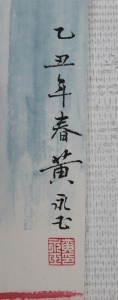 乙丑年春黄永玉